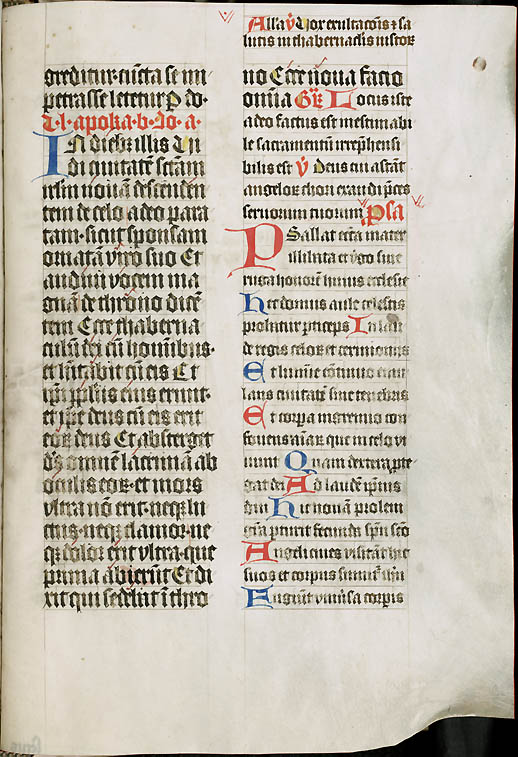 greditur cūcta se im
petrasse letetur P do·
L· l· apoka· b· Jo· a·
In diebus illis Vi
di ciuitatē sctām
irlm nouā descenden
tem de celo a deo para
tam· sicut sponsam
ornatā viro suo Et
audiui vocem ma
gnā de throno dicē
tem Ecce thaberna
culū dei cū hominibus·
et hītabit cū eis Et
ipi pplus eius erunt·
et ipe deus cū eis erit
eoꝝ deus Et absterget
ds omnem lacrimā ab
oculis eoꝝ· et mors
vltra nō erit· neqꝫ lu
ctus· neqꝫ clamor· ne
qꝫ dolor erit vltra· que
prima abierūt Et di
xit qui sedebat ī thro
Alla V Vox exultacōis ⁊ sa
lutis in thabernaclis iustoꝝ
no Ecce noua facio
omīa Gr Locus iste
a deo factus est inestimabi
le sacramentū irrephensi
bilis est V Deus cui astāt
angeloꝝ chori exaudi pces
seruorum tuorum Psa
Psallat eccia mater
illibata et virgo sine
ruga honorē huius ecclesie
Hec domus aule celestis
probatur pticeps In lau
de regis celoꝝ et cerimoniis
Et lumīe cōtinuo emu
lans ciuitatē sine tenebris
Et corpora in gremio con
fouens aīarꝝ que in celo vi
uunt Quam dextera pte
gat dei Ad laudē ipius
diu Hic nouam prolem
gra pturit fecunda spū sco
Angeli ciues visitāt hic
suos et corpus sumitur ihu
Fugiūt vniūsa corpis